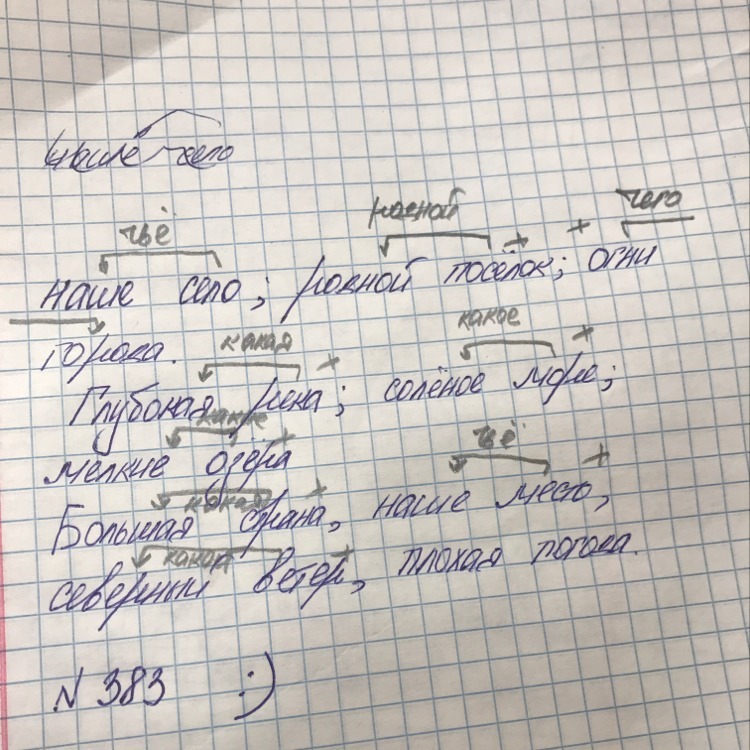 наше село
чьё родной чего
наше село; родной посёлок; огни
города. какая какое
Глубокая река; солёное море;
какие чьё
мелкие озёра
какая
Большая страна, наше место,
какой
северный ветер, плохая погода.
N 383 :)